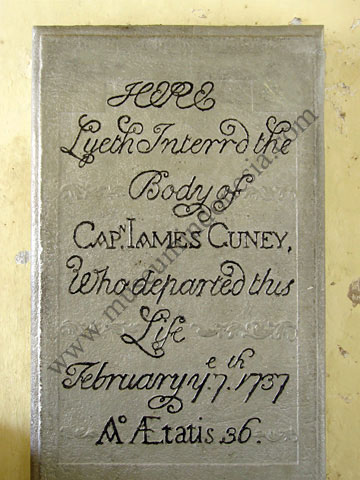 HERE
Lyeth Interrd the
Body of
CAPN. IAMES CUNEY,
Who departed this
Life
February ye. 7th. 1737
Ao Ætatis 36.
www.museumindonesia.com